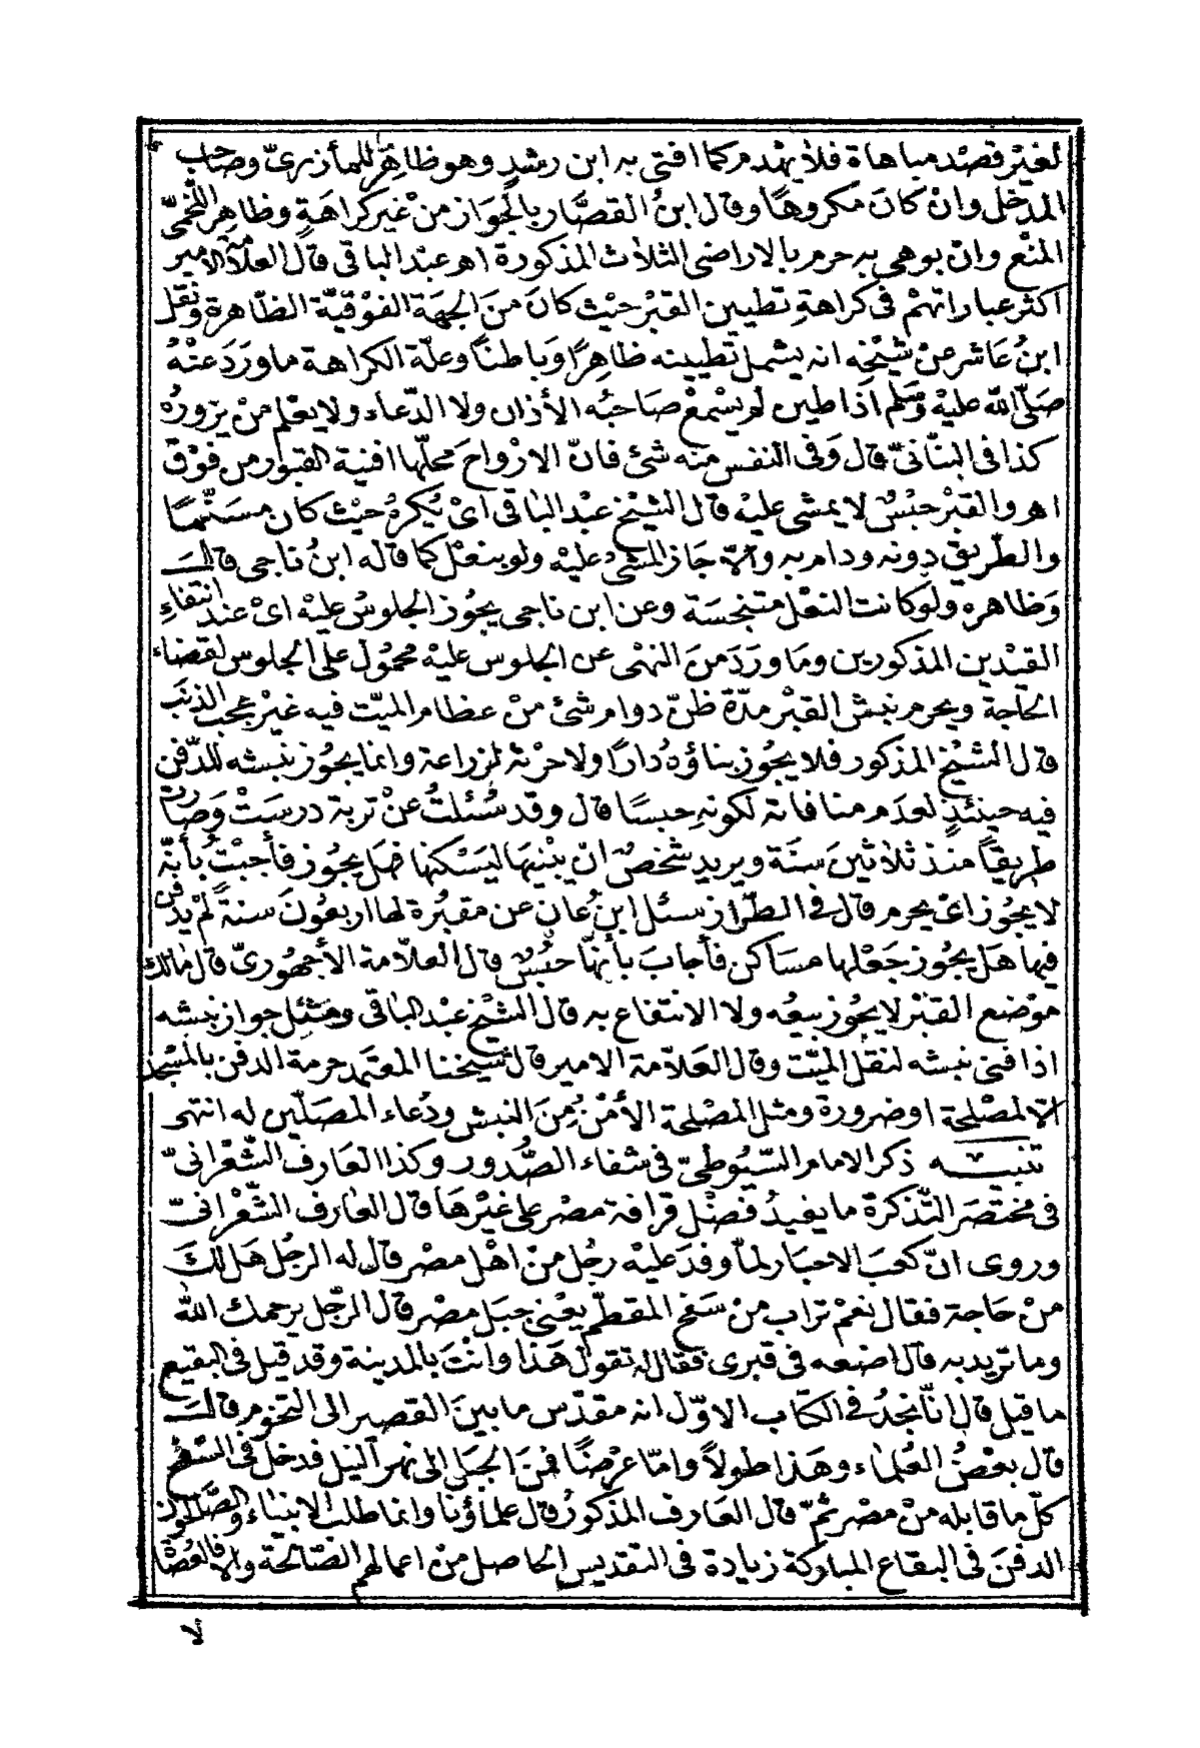 لغَيْر قصْد مباهاة فلا يهْدم كما افتى به ابن رشد وهو ظاهِرٌ للمازرىّ وصَاحب
المدخل وانْ كانَ مكروهًا وقال ابنُ القصَّار بالجَوَاز منْ غير كراهَةٍ وظاهِر اللّخمىّ
المنْع وانْ بوهى به حرم بالاراضى الثلاث المذكورة اهـ عبْد الباقى قال العلّامة الامير
اكثر عباراتهمْ فى كراهةِ تطيين القبْر حيْث كانَ منَ الجهَة الفوْقيّة الظّاهرة ونقل
ابنُ عَاشر عنْ شيْخه انه يشمل تطيينه ظاهِرًا وَباطنًا وعلّة الكراهة ما ورَدَ عنْهُ
صَلّى الله عليْه وَسَلم اذا طين لم يسْمعْ صَاحبُه الأذان ولا الدّعاء ولا يعْلم منْ يزورُه
كذا فى البنّانىّ قال وَفى النفس منه شئ فانّ الارْواحَ محلّها افنية القبور من فوْق
اهـ والقبْر حبْسٌ لا يمشى عليْه قال الشيْخ عبْد الباقى اىْ يُكرهُ حيْث كان مسَنّمًا
والطّريق دونه ودام به والّا جَاز المشْى عليْه ولو بنعْل كما قاله ابنُ ناجى قالــ
وَظاهره ولوْ كانت النعْل متنجسَة وعن ابن ناجى يجُوز الجلوسُ عليْه اىْ عند انتفاءِ
القيْدين المذكورين ومَا ورَدَ منَ النهْى عن الجلوس عليْه محمُول على الجلوس لقضاء
الحَاجة ويحرم نبش القبْر مدّة ظنّ دوام شئ منْ عظام الميّت فيه غيْر عجْب الذنَب
قال الشيْخ المذكور فلا يجُوز بناؤهُ دارًا ولا حرْثه لزراعة وانما يجُوز نبشه للدّفن
فيه حينئذٍ لعدَم منافاته لكونهِ حبسًا قال وقد سُئلتُ عنْ تربة درسَتْ وَصَارت
طريقًا منْذ ثلاثينَ سنَة ويريد شخصٌ انْ يبْنيَها ليَسْكنها فهل يجُوز فأجبْتُ بأنّه
لا يجُوز اىْ يحرم قال فى الطّراز سئل ابنُ عان عن مقبُرة لها اربعُونَ سنةً لمْ يدْفن
فيها هَل يجُوز جَعْلها مسَاكن فأجابَ بأنهّا حبْسٌ قال العلّامة الأجهُورىّ قال مالك
موْضع القبْر لا يجُوز بيعُه ولا الانتفاع به قال الشيْخ عبْد الباقى ومثْل جواز نبشه
اذا فنى نبشه لنقل الميّت وقال العَلّامة الامير قال شيخنا المعْتمد حرمة الدفن بالمسْجد
الّا لمصْلحة او ضرورة ومثل المصْلحة الأمْنُ مِنَ النبش ودُعاء المصَلّين له انتهى
تنبيــه ذكر الامام السّيُوطىّ فى شفاء الصُّدور وكذا العَارف الشّعْرانىّ
فى مختصَر التّذكرة ما يفيدُ فضْل قرافة مصْر على غيْرهَا قال العَارف الشّعْرانىّ
وروى انّ كعْبَ الاحبَار لمّا وفدَ عليْه رجُل منْ اهْل مصْر قال له الرجُل هَل لكَ
منْ حَاجة فقال نعَمْ تراب منْ سَفح المقطّم يعْنى جبَل مصْر قال الرّجل يرحمك الله
وما تريد به قال اضعه فى قبرى فقال له تقول هَذا وانْتَ بالمدينة وقد قيل فى البقيع
ما قيل قال انّا نجدُ فى الكتاب الاوّل انه مقدّس ما بينَ القصير الى اليحْموم قالــ
قال بعْضُ العُلماء وهَذا طولًا وامّا عرْضًا فمنَ الجبَل الى نهر النيل فدخل فى السّفح
كلّ ما قابله منْ مصْر ثمّ قال العَارف المذكورُ قال علماؤنا وانما طلب الانبيَاء والصّالحُون
الدفنَ فى البقاع المباركة زيادة فى التقديس الحاصل منْ اعمالهم الصّالحة والّا فالعُصَاة
لا